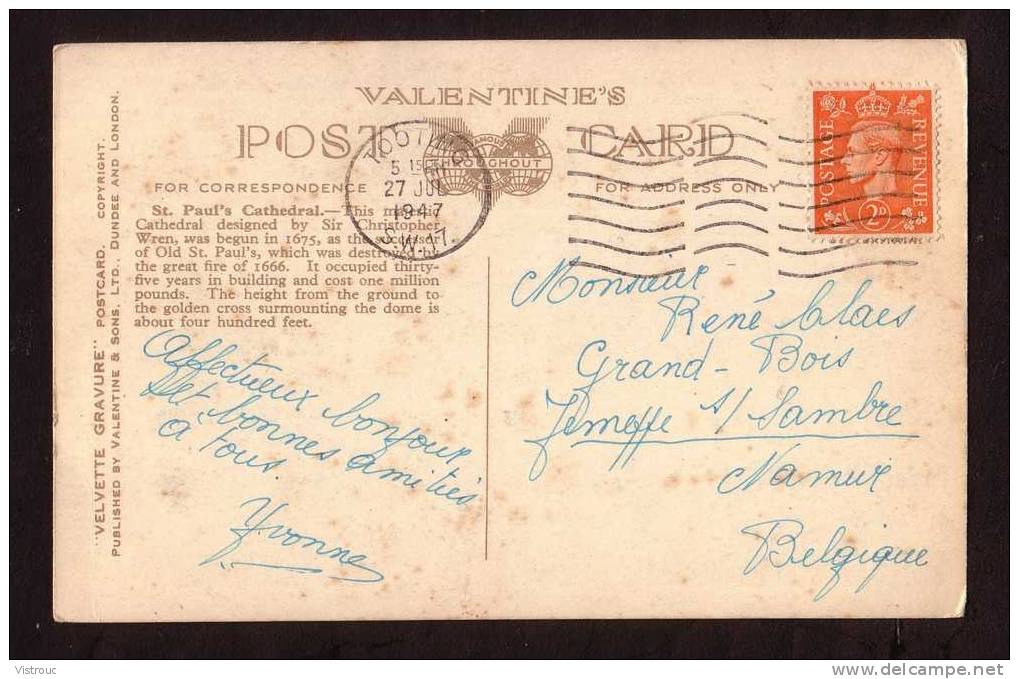 VALENTINE'S
POST CARD
THROUGHOUT
FOR CORRESPONDENCE
FOR ADDRESS ONLY
"VELVETTE GRAVURE" POSTCARD. COPYRIGHT.
PUBLISHED BY VALENTINE & SONS, LTD., DUNDEE AND LONDON.
5 15
27 JUL
1947
S.W.17
POSTAGE REVENUE
2D
St. Paul's Cathedral.—This majestic
Cathedral designed by Sir Christopher
Wren, was begun in 1675, as the successor
of Old St. Paul's, which was destroyed by
the great fire of 1666. It occupied thirty-
five years in building and cost one million
pounds. The height from the ground to
the golden cross surmounting the dome is
about four hundred feet.
Affectueux bonjour
et bonnes amitiés
à tous
Yvonne
Monsieur
René Claes
Grand-Bois
Jemeppe s/ Sambre
Namur
Belgique
Vistrouc
www.delcampe.net